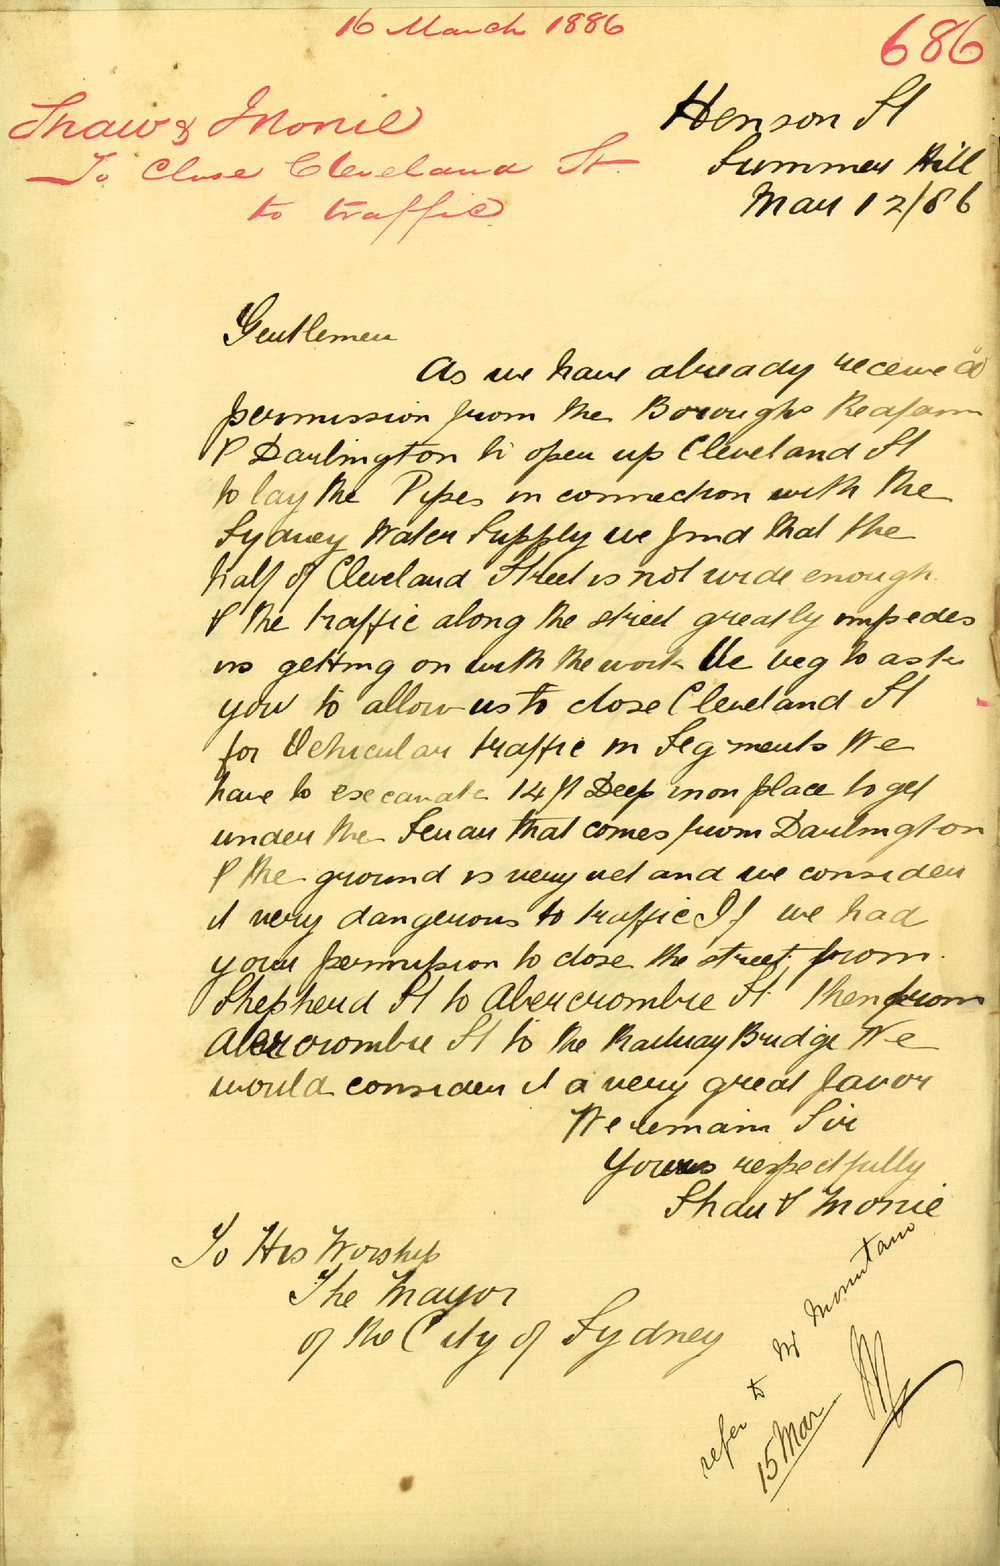 16 March 1886
686
Shaw & Monie
To Close Cleveland St.
to traffic
Henson St
Summer Hill
Mar 12/86
Gentlemen
As we have already received
permission from the Boroughs Redfern
& Darlington to open up Cleveland St
to lay the Pipes in connection with the
Sydney Water Supply we find that the
half of Cleveland Street is not wide enough
& the traffic along the street greatly impedes
us getting on with the work We beg to ask
you to allow us to close Cleveland St
for Vehicular traffic in Segments We
have to excavate 14 ft Deep in on place to get
under the Sewar that comes from Darlington
& the ground is very wet and we consider
it very dangerous to traffic If we had
your permission to close the street from
Shepherd St to Abercrombie St then from
Abercrombie St to the Railway Bridge We
would consider it a very great favor
We remain Sir
Yours respectfully
Shaw & Monie
To His Worship
The Mayor
of the City of Sydney
refer to Mr Mountain
15 Mar